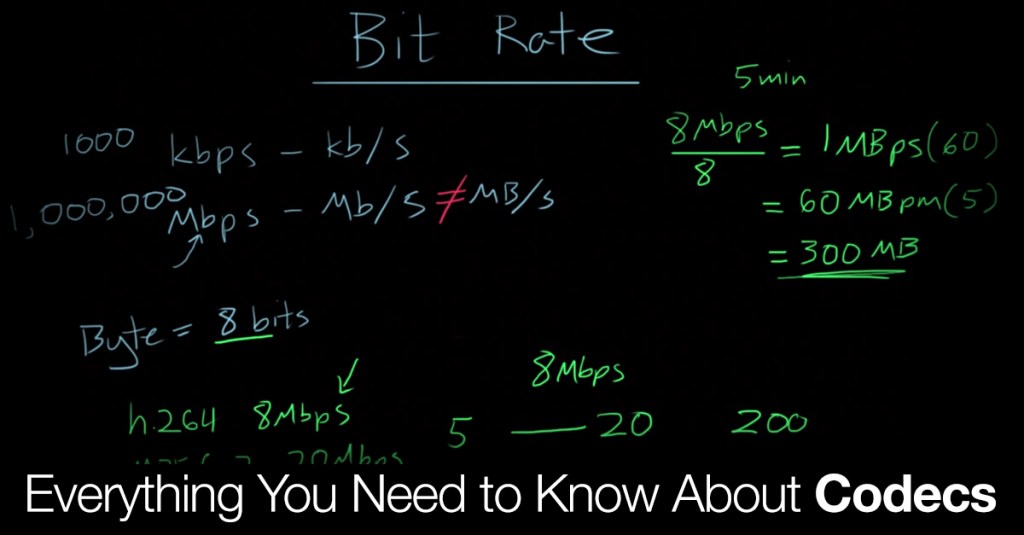 Bit Rate
1000 kbps - kb/s
1,000,000 Mbps - Mb/s ≠ MB/s
Byte = 8 bits
5min
8Mbps/8 = 1MBps(60)
= 60MBpm(5)
= 300 MB
h.264 8Mbps
8Mbps
5 — 20 200
20Mbps
Everything You Need to Know About Codecs